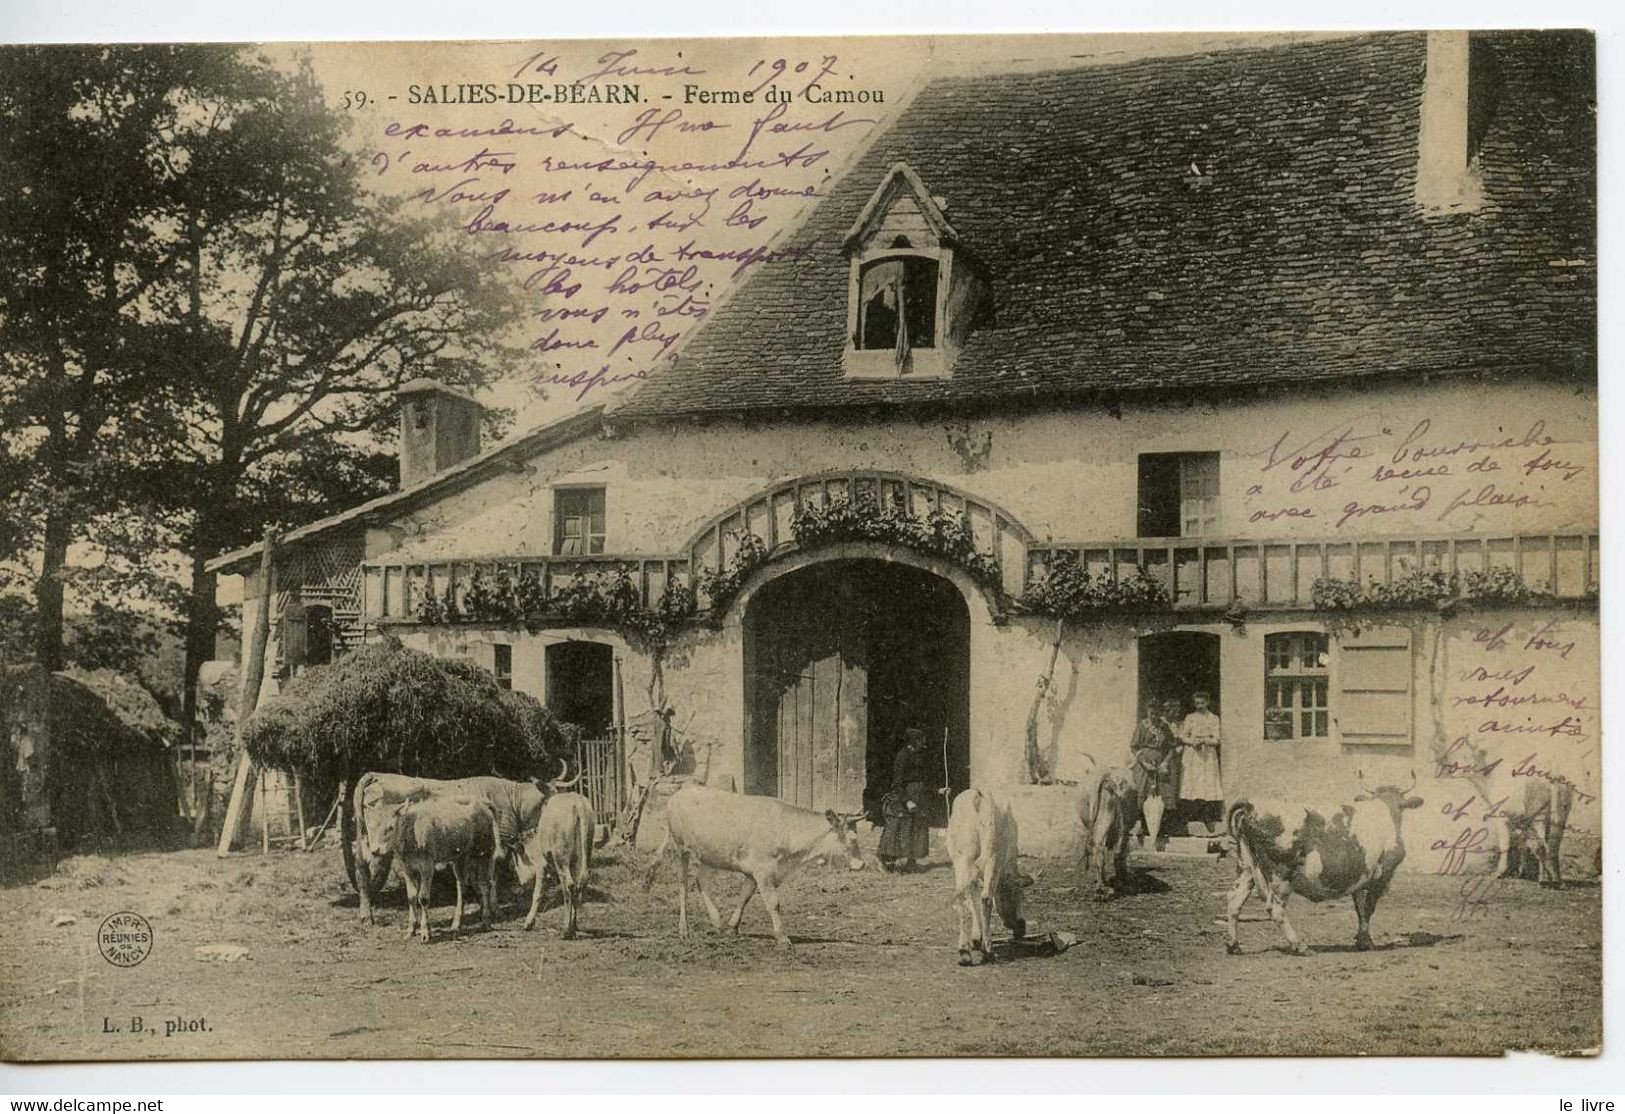 14 Juin 1907.
59. - SALIES-DE-BÉARN. - Ferme du Camou
examens. Il me faut
d'autres renseignements
Vous m'en aviez donné
beaucoup, sur les
moyens de transport,
les hôtels.
vous n'êtes
donc plus
inspiré?
Votre "bourriche
a été reçue de tous
avec grand plaisir
et tous
vous
retournent
amitié,
bons souv
et
affe
IMPR.
RÉUNIES
DE
NANCY
L. B., phot.
le livre